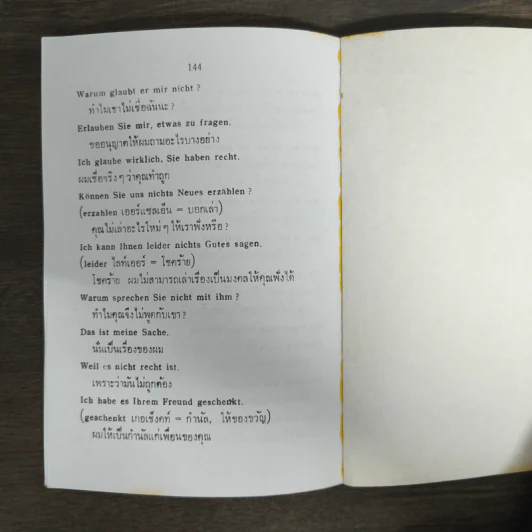 144
Warum glaubt er mir nicht ?
ทำไมเขาไม่เชื่อฉันนะ ?
Erlauben Sie mir, etwas zu fragen.
ขออนุญาตให้ผมถามอะไรบางอย่าง
Ich glaube wirklich, Sie haben recht.
ผมเชื่อจริง ๆ ว่าคุณทำถูก
Können Sie uns nichts Neues erzählen ?
(erzahlen เออร์แซลเอ็น = บอกเล่า)
คุณไม่เล่าอะไรใหม่ ๆ ให้เราฟังหรือ ?
Ich kann Ihnen leider nichts Gutes sagen.
(leider ไลท์เออร์ = โชคร้าย)
โชคร้าย ผมไม่สามารถเล่าเรื่องเป็นมงคลให้คุณฟังได้
Warum sprechen Sie nicht mit ihm ?
ทำไมคุณจึงไม่พูดกับเขา ?
Das ist meine Sache.
นั่นเป็นเรื่องของผม
Weil es nicht recht ist.
เพราะว่ามันไม่ถูกต้อง
Ich habe es Ihrem Freund geschenkt.
(geachenkt เกอเช็งคท์ = กำนัล, ให้ของขวัญ)
ผมให้เป็นกำนัลแก่เพื่อนของคุณ